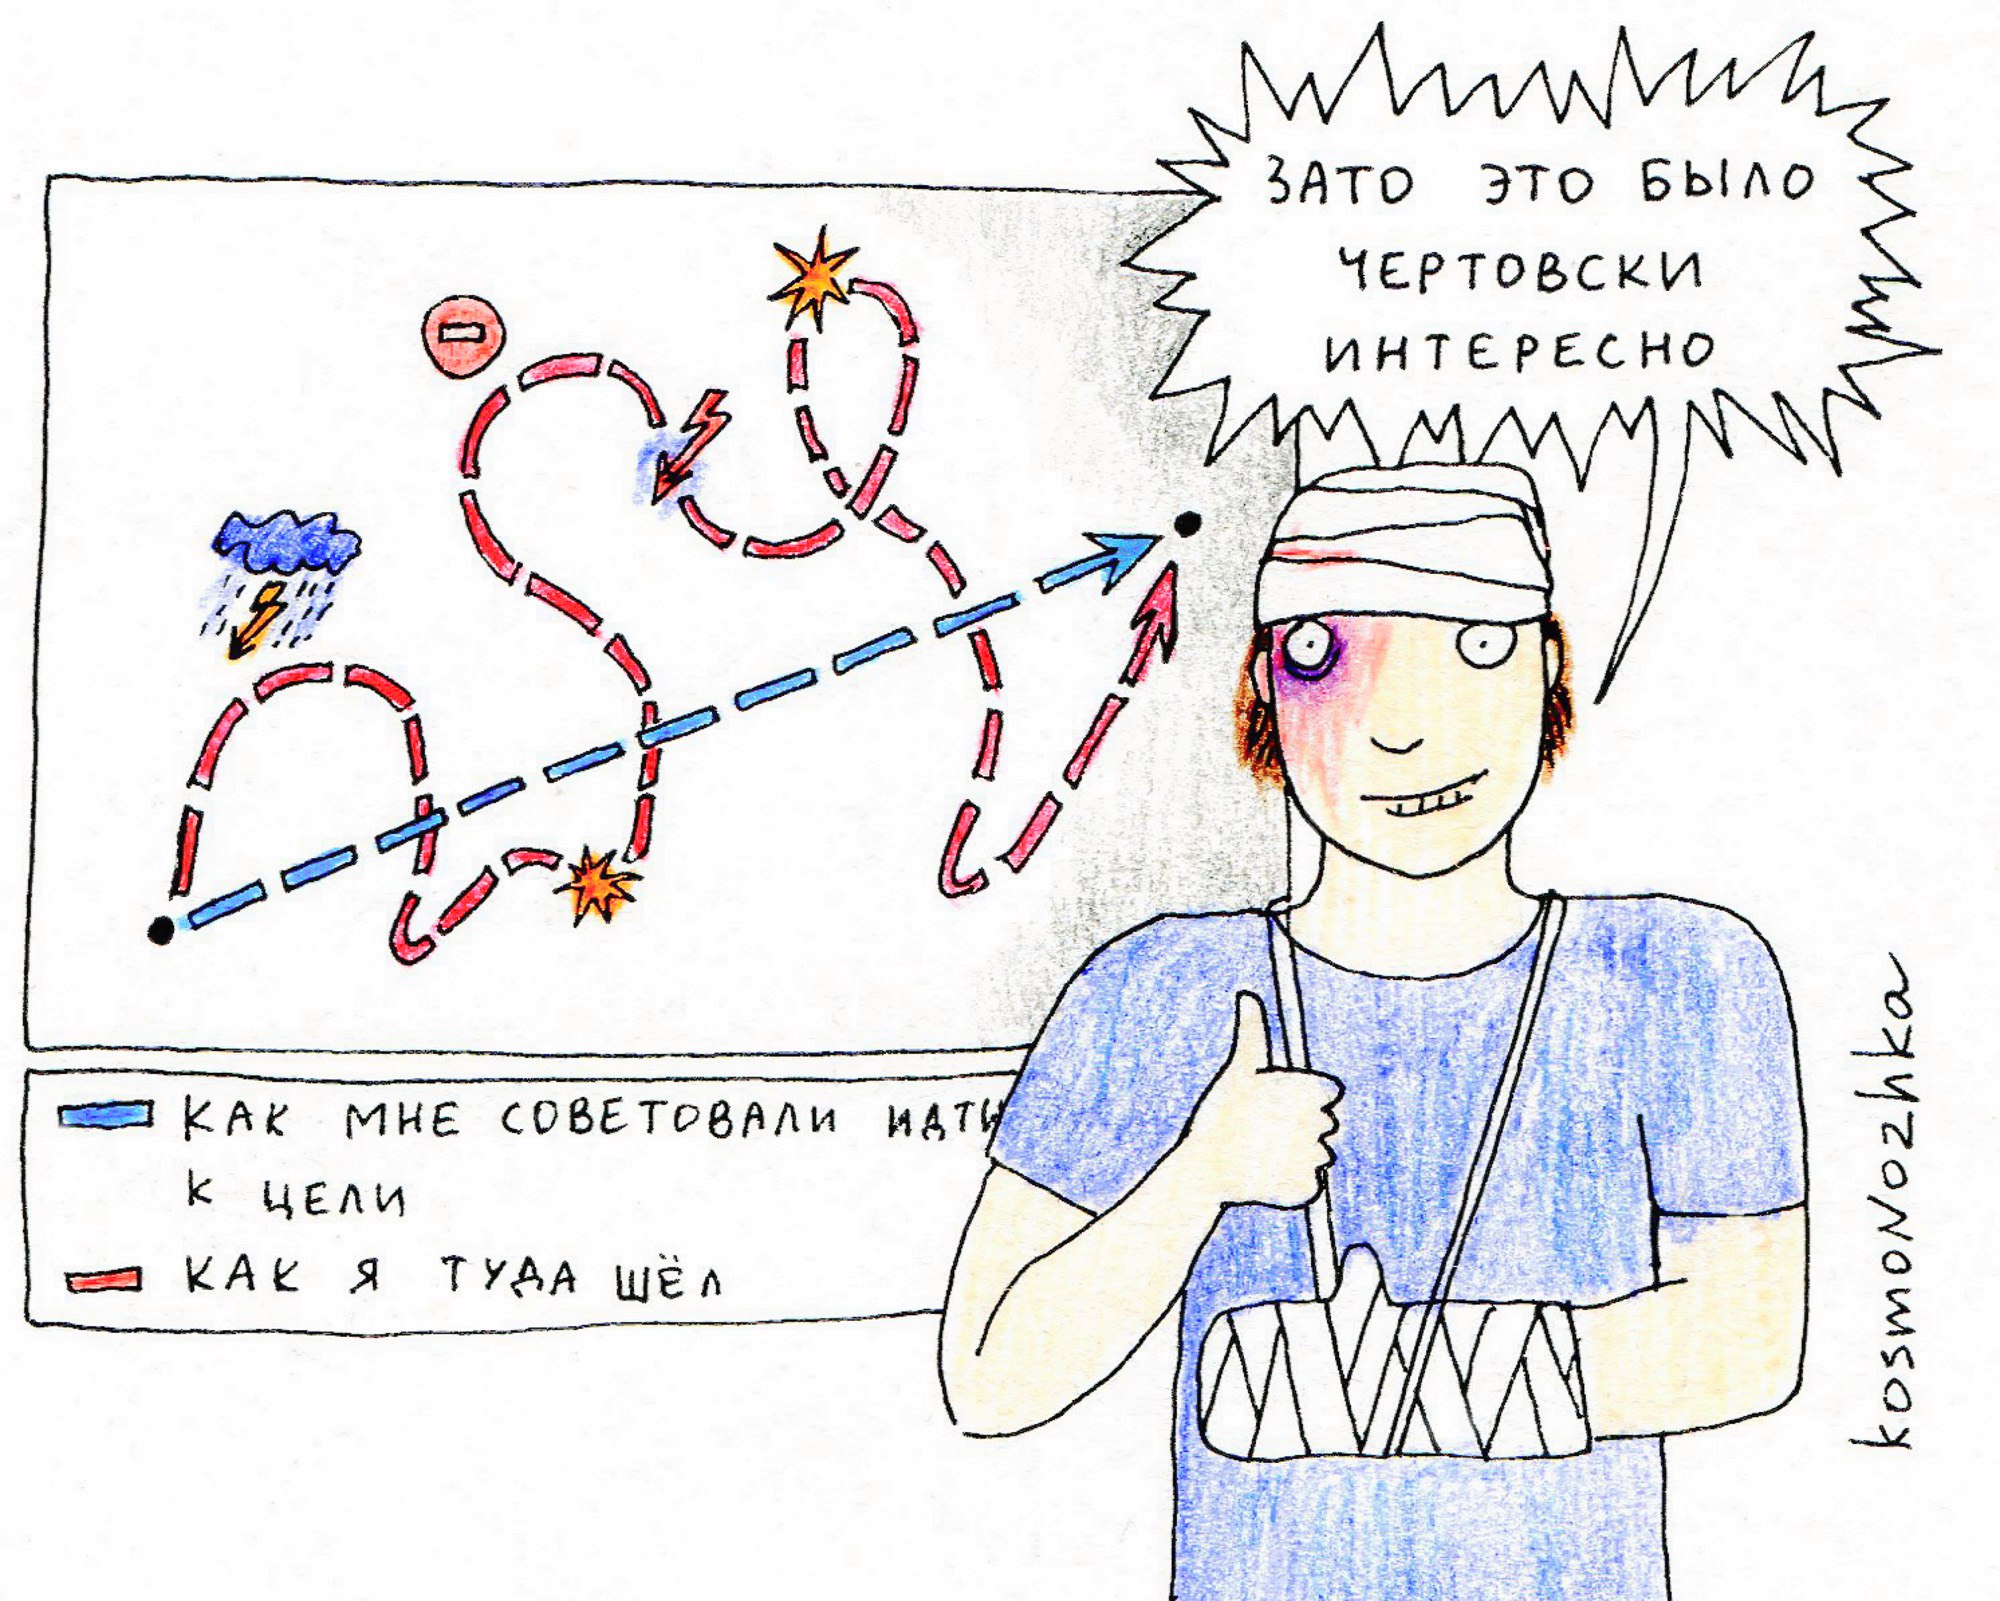 ЗАТО ЭТО БЫЛО
ЧЕРТОВСКИ
ИНТЕРЕСНО
КАК МНЕ СОВЕТОВАЛИ ИДТИ
К ЦЕЛИ
КАК Я ТУДА ШЁЛ
kosmonozhka